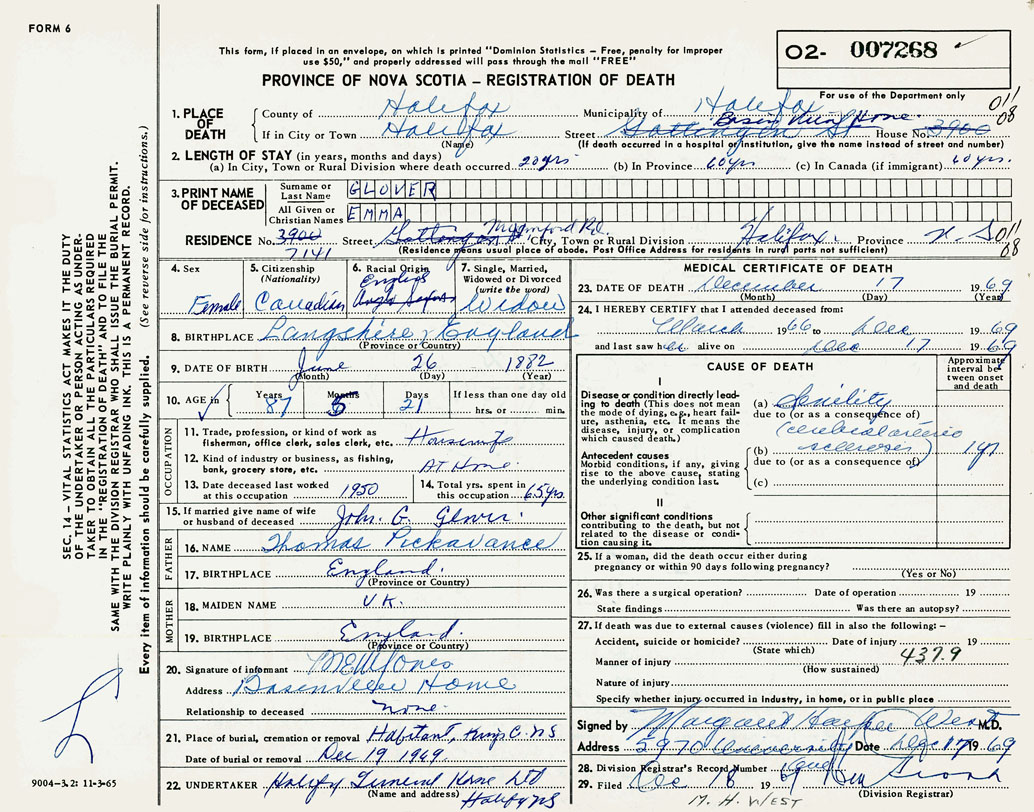 FORM 6
This form, if placed in an envelope, on which is printed "Dominion Statistics – Free, penalty for improper
use $50," and properly addressed will pass through the mail "FREE"
PROVINCE OF NOVA SCOTIA – REGISTRATION OF DEATH
02- 007268
For use of the Department only
011
08
1. PLACE OF DEATH
County of Halifax Municipality of Halifax
Basin View Home.
If in City or Town Halifax Street Gottingen St House No. 3900
(Name) (If death occurred in a hospital or institution, give the name instead of street and number)
2. LENGTH OF STAY (in years, months and days)
(a) In City, Town or Rural Division where death occurred 20 yrs (b) In Province 60 yrs (c) In Canada (if immigrant) 60 yrs.
3. PRINT NAME OF DECEASED
Surname or Last Name GLOVER
All Given or Christian Names EMMA
Mumford Rd.
RESIDENCE No. 3900 Street Gottingen St City, Town or Rural Division Halifax Province N.S.
7141 (Residence means usual place of abode. Post Office Address for residents in rural parts not sufficient)
011
08
4. Sex Female
5. Citizenship (Nationality) Canadian
6. Racial Origin English
7. Single, Married, Widowed or Divorced (write the word) Widow
8. BIRTHPLACE Langshire, England
(Province or Country)
9. DATE OF BIRTH June 26 1882
(Month) (Day) (Year)
10. AGE in Years 87 Months 5 Days 21 If less than one day old hrs. or min.
OCCUPATION
11. Trade, profession, or kind of work as fisherman, office clerk, sales clerk, etc. Housewife
12. Kind of industry or business, as fishing, bank, grocery store, etc. At Home.
13. Date deceased last worked at this occupation 1950
14. Total yrs. spent in this occupation 65 yrs.
15. If married give name of wife or husband of deceased John. G. Glover.
FATHER
16. NAME Thomas Pickavance
17. BIRTHPLACE England.
(Province or Country)
MOTHER
18. MAIDEN NAME U.K.
19. BIRTHPLACE England.
(Province or Country)
20. Signature of informant Jones
Address Basinview Home
Relationship to deceased none.
21. Place of burial, cremation or removal Kings C. NS
Date of burial or removal Dec 19 1969
22. UNDERTAKER Halifax Funeral Home Ltd
(Name and address) Halifax NS
MEDICAL CERTIFICATE OF DEATH
23. DATE OF DEATH December 17 1969
(Month) (Day) (Year)
24. I HEREBY CERTIFY that I attended deceased from:
March 1966 to Dec 1969
and last saw her alive on Dec 17 1969
CAUSE OF DEATH
Approximate interval between onset and death
I
Disease or condition directly leading to death (This does not mean the mode of dying, e.g., heart failure, asthenia, etc. It means the disease, injury, or complication which caused death.)
(a) Senility
due to (or as a consequence of)
(cerebral arterio
sclerosis)
Antecedent causes
Morbid conditions, if any, giving rise to the above cause, stating the underlying condition last.
(b)
due to (or as a consequence of)
(c)
II
Other significant conditions contributing to the death, but not related to the disease or condition causing it.
25. If a woman, did the death occur either during pregnancy or within 90 days following pregnancy?
(Yes or No)
26. Was there a surgical operation? Date of operation 19
State findings Was there an autopsy?
27. If death was due to external causes (violence) fill in also the following: –
Accident, suicide or homicide? Date of injury 19
(State which) 437.9
Manner of injury
(How sustained)
Nature of injury
Specify whether injury occurred in Industry, in home, or in public place
Signed by Margaret West M.D.
Address 5970 University Date Dec 17 1969
28. Division Registrar's Record Number
29. Filed Dec 18 1969
(Division Registrar)
M. H. WEST
SEC. 14 – VITAL STATISTICS ACT MAKES IT THE DUTY
OF THE UNDERTAKER OR PERSON ACTING AS UNDER-
TAKER TO OBTAIN ALL THE PARTICULARS REQUIRED
IN THE "REGISTRATION OF DEATH" AND TO FILE THE
SAME WITH THE DIVISION REGISTRAR WHO SHALL ISSUE THE BURIAL PERMIT.
WRITE PLAINLY WITH UNFADING INK. THIS IS A PERMANENT RECORD.
Every item of information should be carefully supplied. (See reverse side for instructions.)
9004-3.2: 11-3-65